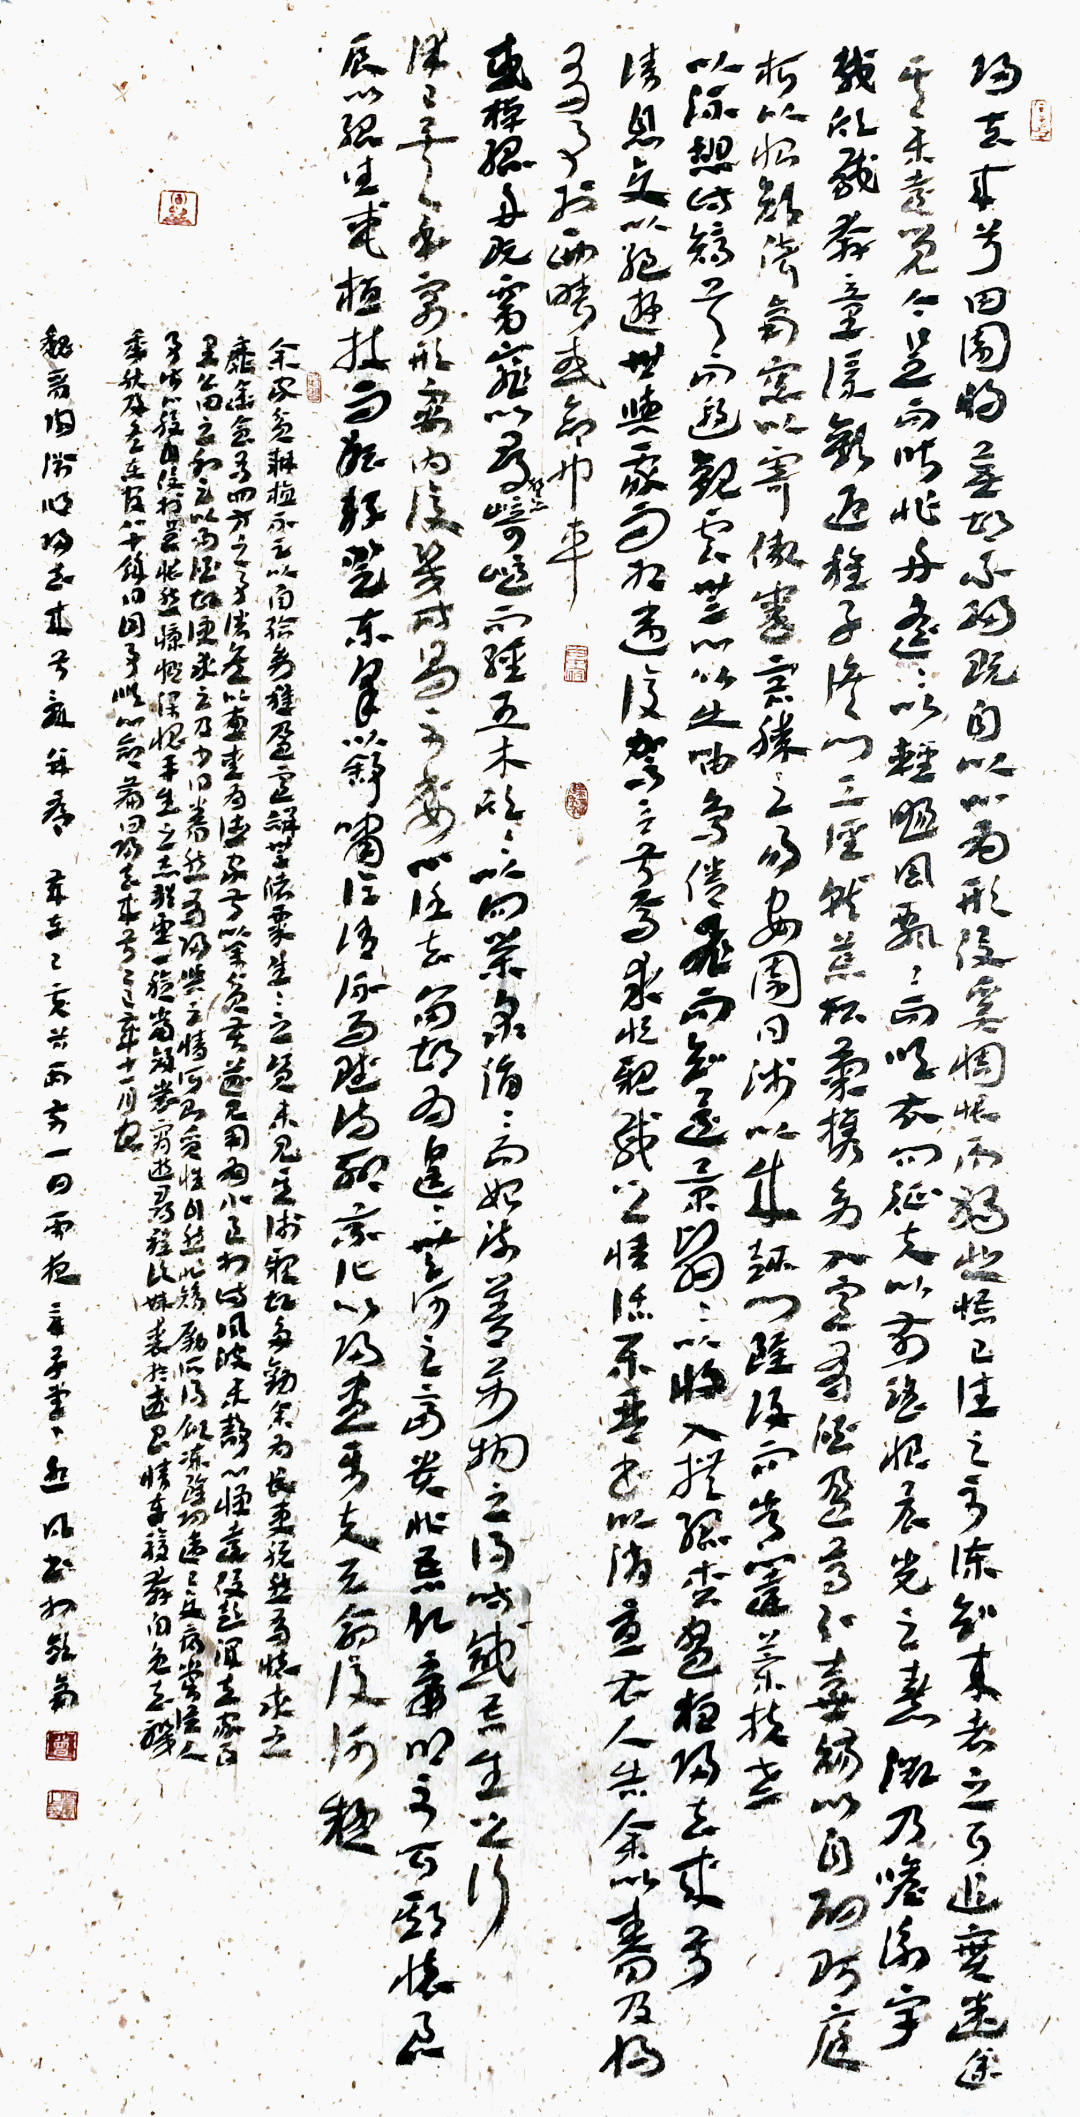 歸去來兮田園將蕪胡不歸既自以心為形役奚惆悵而獨悲悟已往之不諫知來者之可追實迷途
其未遠覺今是而昨非舟遙遙以輕颺風飄飄而吹衣問征夫以前路恨晨光之熹微乃瞻衡宇
載欣載奔童僕歡迎稚子候門三徑就荒松菊攜幼入室有酒盈尊引壺觴以自酌眄庭
柯以怡顏倚南窗以寄傲審容膝之易安園日涉以成趣門雖設而常關策扶老
以流憩時矯首而遐觀雲無心以出岫鳥倦飛而知還景翳翳以將入撫孤松盤桓歸去來兮
請息交以絕遊世與我而相違復駕言兮焉求悅親戚之情話樂琴書以消憂農人告余以春及將
有事於西疇或命巾車
或棹孤舟既窈窕以尋壑亦崎嶇而經丘木欣欣以向榮泉涓涓而始流善萬物之得時感吾生之行
休已矣乎寓形宇內復幾時曷不委心任去留胡為遑遑欲何之富貴非吾願帝鄉不可期懷良
辰以孤往或植杖而耘耔登東皋以舒嘯臨清流而賦詩聊乘化以歸盡樂夫天命復何疑
余家貧耕植不足以自給幼稚盈室缾無儲粟生生之資未見其術親故多勸余為長吏脫然有懷求之
靡途會有四方之事諸侯以惠愛為德家叔以余貧苦遂見用為小邑於時風波未靜心憚遠役彭澤去家百
里公田之利足以為酒故便求之及少日眷然有歸與之情何則質性自然非矯勵所得飢凍雖切違己交病嘗從人
事皆口腹自役於是悵然慷慨深愧平生之志猶望一稔當斂裳宵逝尋程氏妹喪於武昌情在駿奔自免去職
仲秋至冬在官八十餘日因事順心命篇曰歸去來兮乙巳歲十一月也
魏晉陶淵明歸去來兮辭并序 歲在己亥